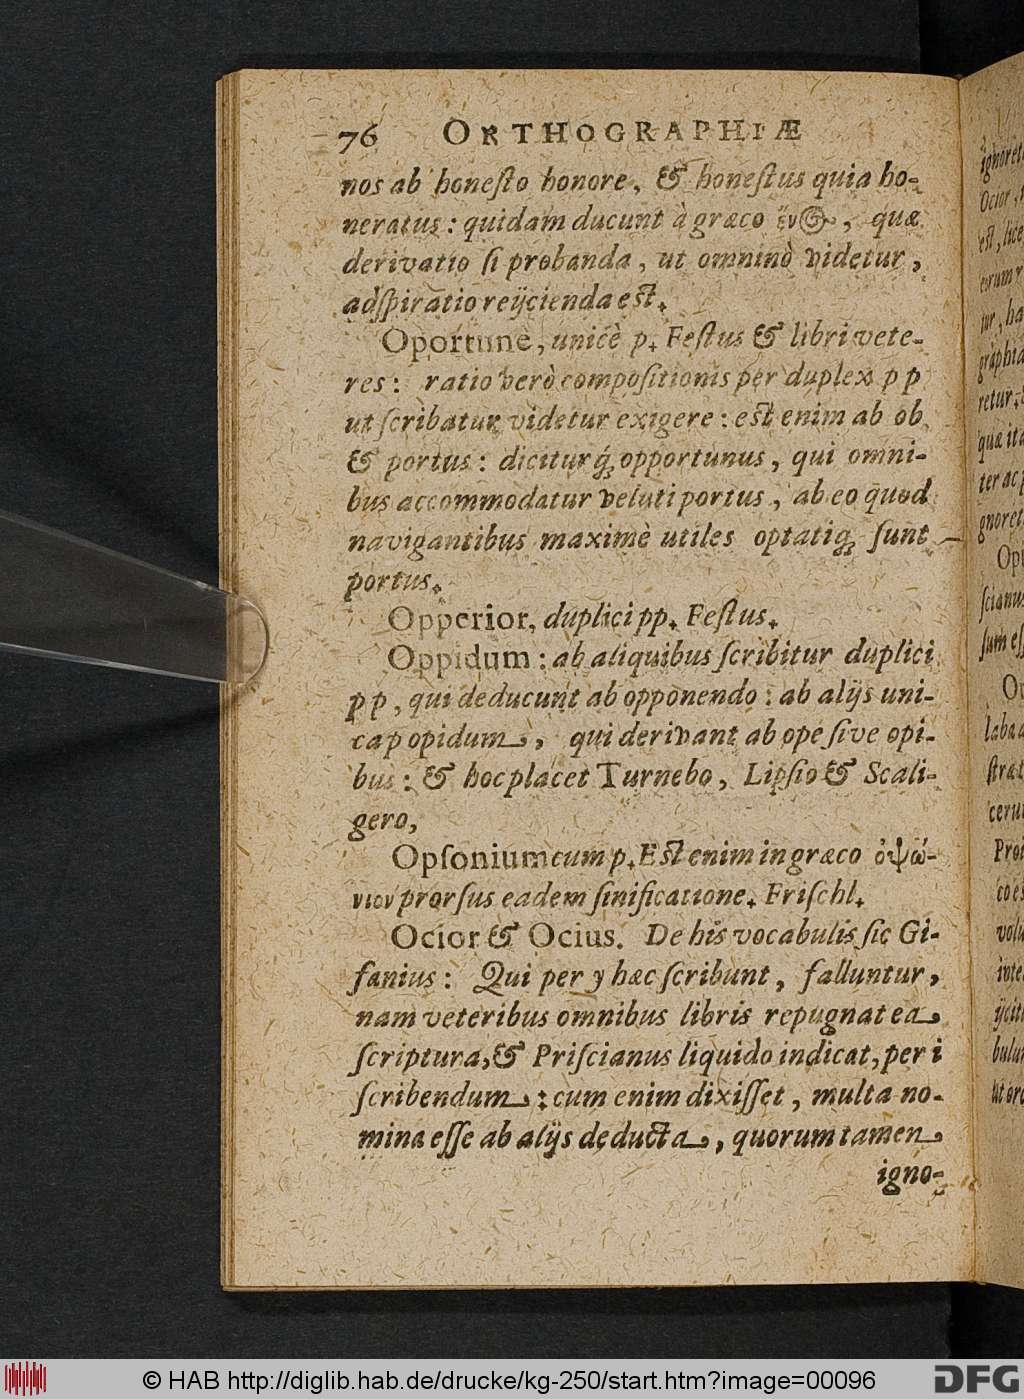 76 ORTHOGRAPHIÆ
nos ab honeſto honore, & honeſtus quia ho-
neratus: quidam ducunt à græco , quæ
derivatio ſi probanda, ut omninò videtur,
adſpiratio reijcienda est.
Oportunè, unicè p. Feſtus & libri vete-
res: ratio verò compoſitionis per duplex p p
ut ſcribatur videtur exigere: est enim ab ob
& portus: diciturq́; opportunus, qui omni-
bus accommodatur veluti portus, ab eo quod
navigantibus maximè utiles optatiq́; ſunt
portus.
Opperior, duplici pp. Feſtus.
Oppidum: ab aliquibus ſcribitur duplici
p p, qui deducunt ab opponendo: ab alijs uni-
ca p opidum, qui derivant ab ope ſive opi-
bus: & hoc placet Turnebo, Lipſio & Scali-
gero,
Opſonium cum p. Est enim in græco ὀψώ-
νιον prorſus eadem ſinificatione. Friſchl.
Ocior & Ocius. De his vocabulis ſic Gi-
fanius: Qui per y hæc ſcribunt, falluntur,
nam veteribus omnibus libris repugnat ea
ſcriptura, & Priſcianus liquido indicat, per i
ſcribendum: cum enim dixiſſet, multa no-
mina eſſe ab alijs deducta, quorum tamen
igno-
© HAB http://diglib.hab.de/drucke/kg-250/start.htm?image=00096
DFG